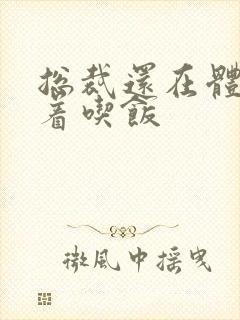 総裁還在體
着喫飯
微風中搖曳